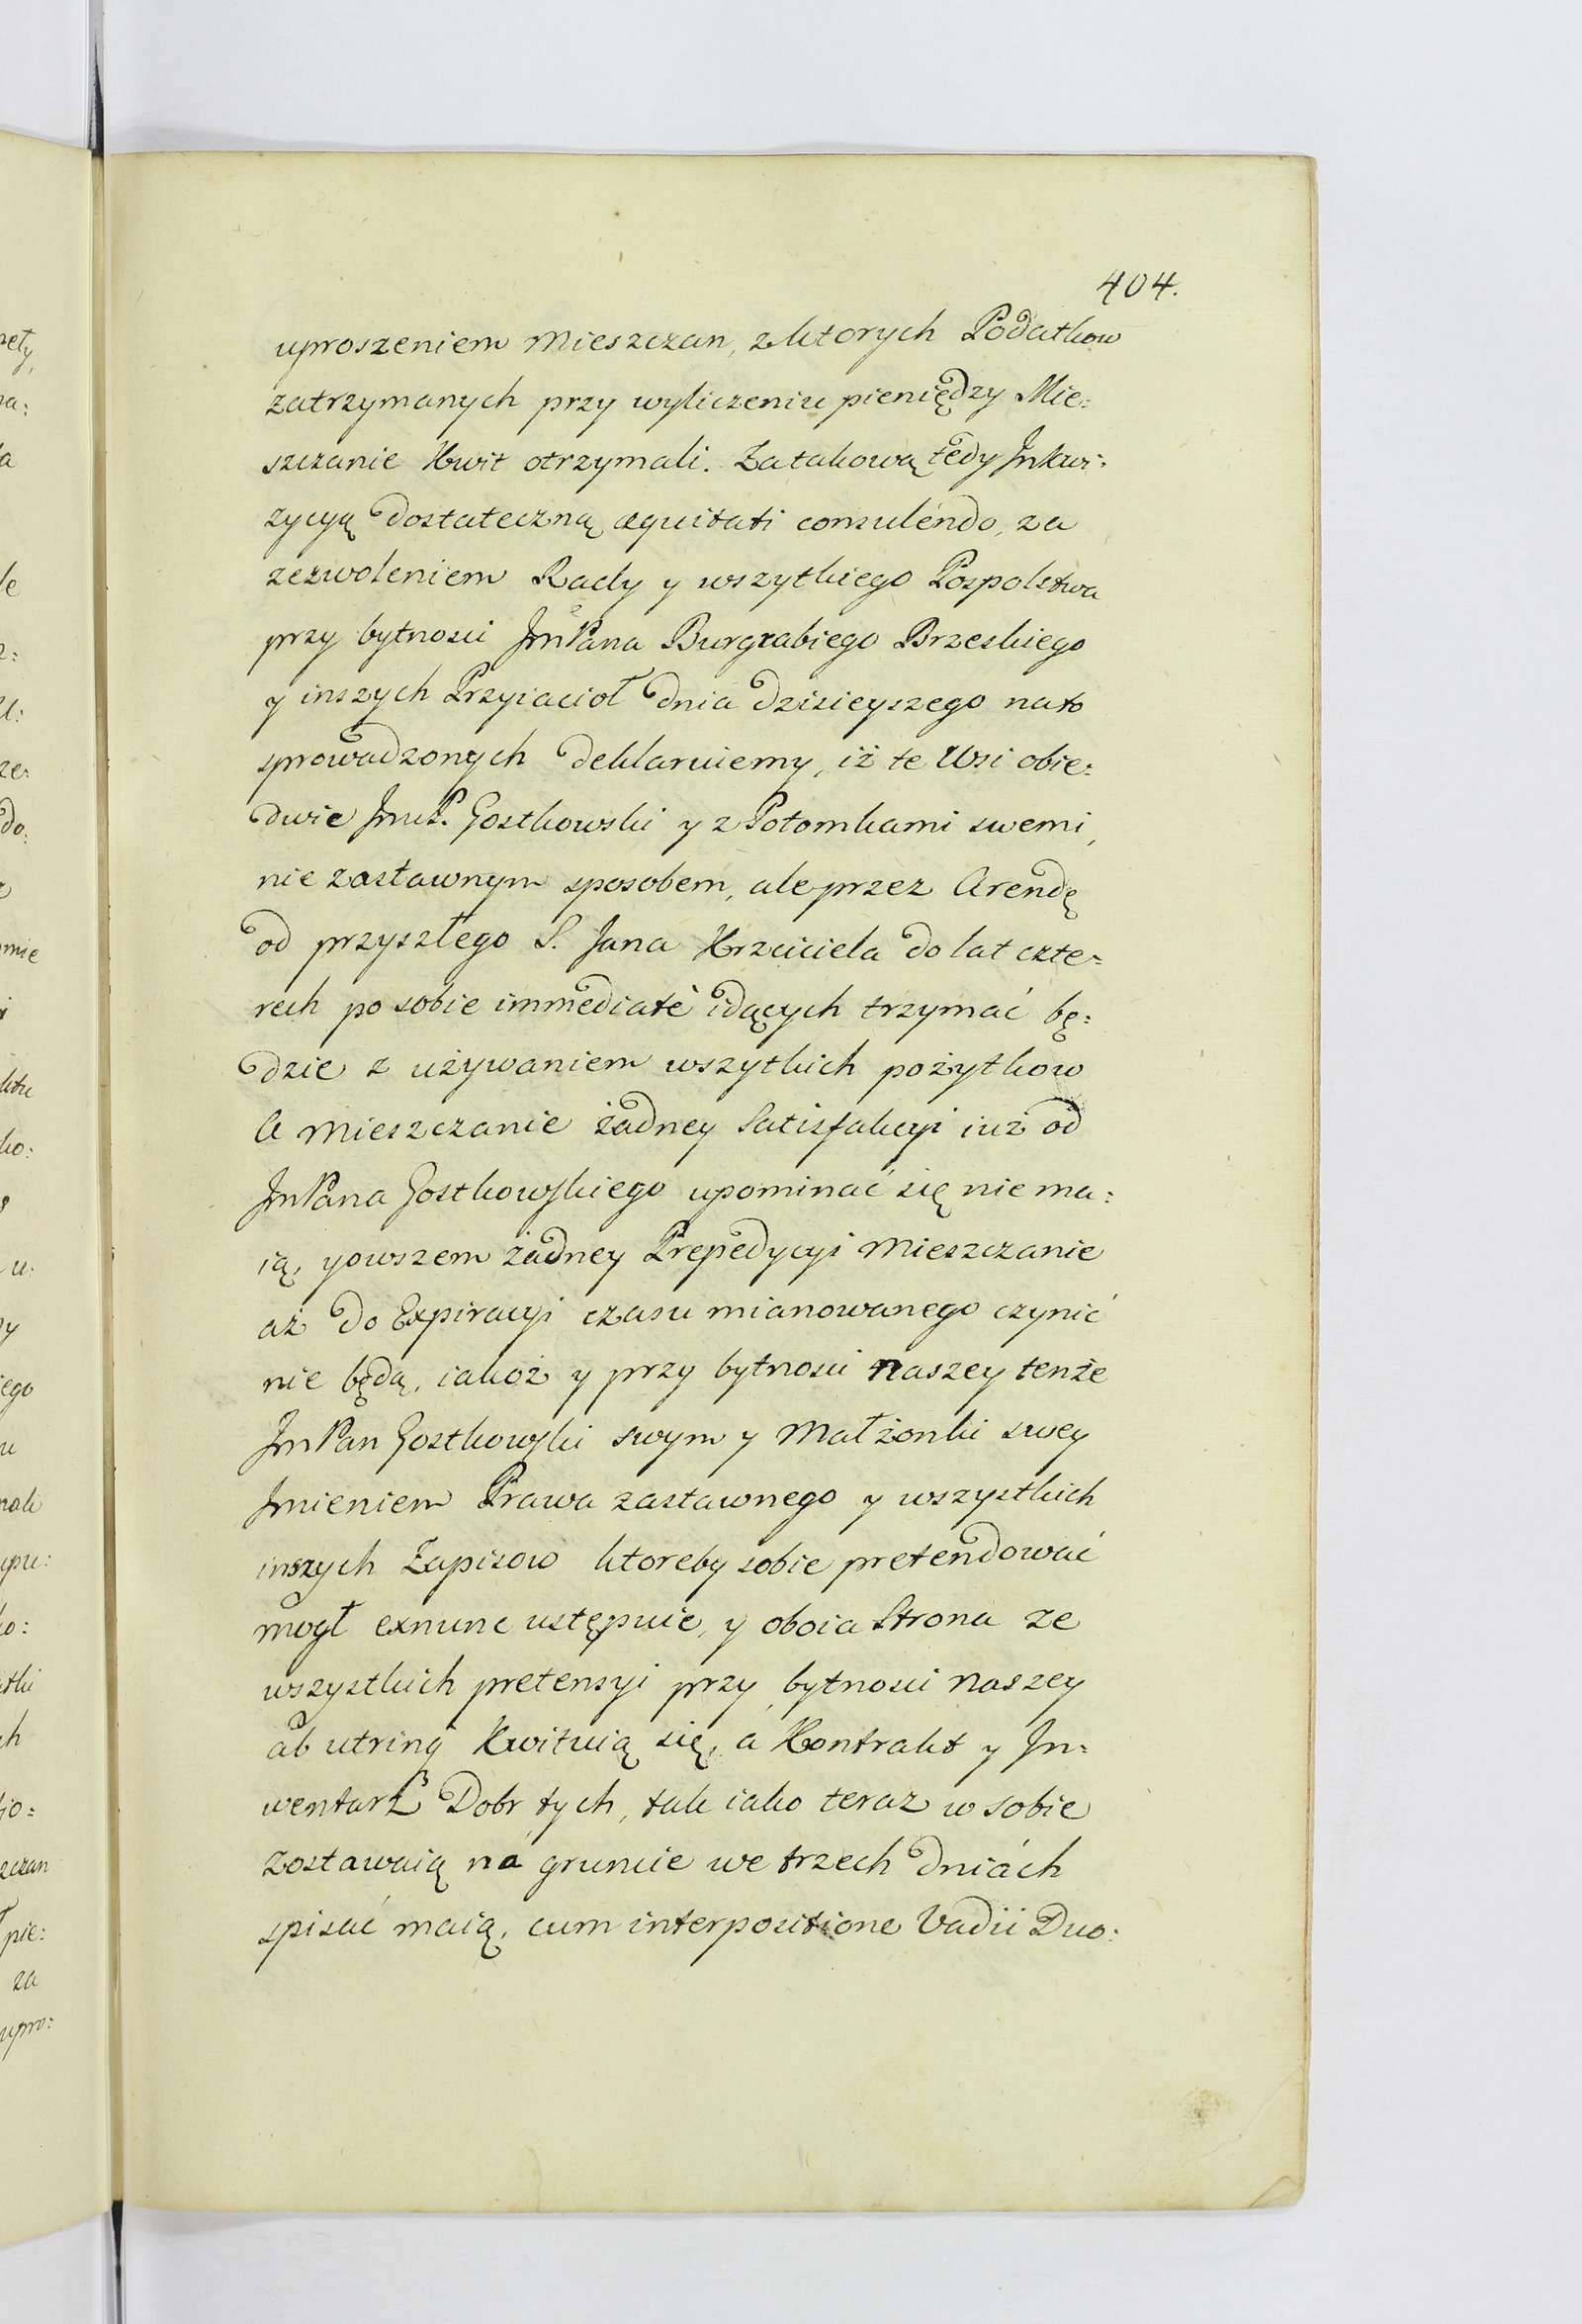 404.
uproszeniem Mieszczan, z ktorych Podatkow
zatrzymanych przy wyliczeniu pieniędzy Mie:
szczanie Kwit otrzymali. Zatakową tedy Jnkwi:
zycyą dostateczną æquitati consulendo, za
zezwoleniem Rady y wszytkiego Pospolstwa
przy bytnosci JmPana Burgrabiego Brzeskiego
y inszych Przyiacioł dnia dzisieyszego nato
sprowadzonych deklaruiemy, iż te Wsi obie:
dwie JmcP. Gostkowski y z Potomkami swemi,
nie zastawnym sposobem, ale przez Arendę
od przyszłego S. Jana Krzciciela do lat czte:
rech po sobie immediatè idących trzymać bę:
dzie z używaniem wszytkich pożytkow
A Mieszczanie żadney Satisfakcyi iuż od
JmPana Gostkowskiego upominać się nie ma:
ią, yowszem żadney Prepedycyi Mieszczanie
aż do Expiracyi czasu mianowanego czynić
nie będą, iakoż y przy bytnosci naszey tenże
JmPan Gostkowski swym y Małżonki swey
Jmieniem Prawa zastawnego y wszystkich
inszych Zapisow ktoreby sobie pretendować
mogł exnunc ustępuie, y oboia Strona ze
wszystkich pretensyi przy bytnosci naszey
ab utrinq Kwituią się, á Kontrakt y Jn:
wentarz Dobr tych, tak iako teraz w sobie
zostawaią ná gruncie we trzech dniách
spisać maią, cum interpositione Vadii Duo: